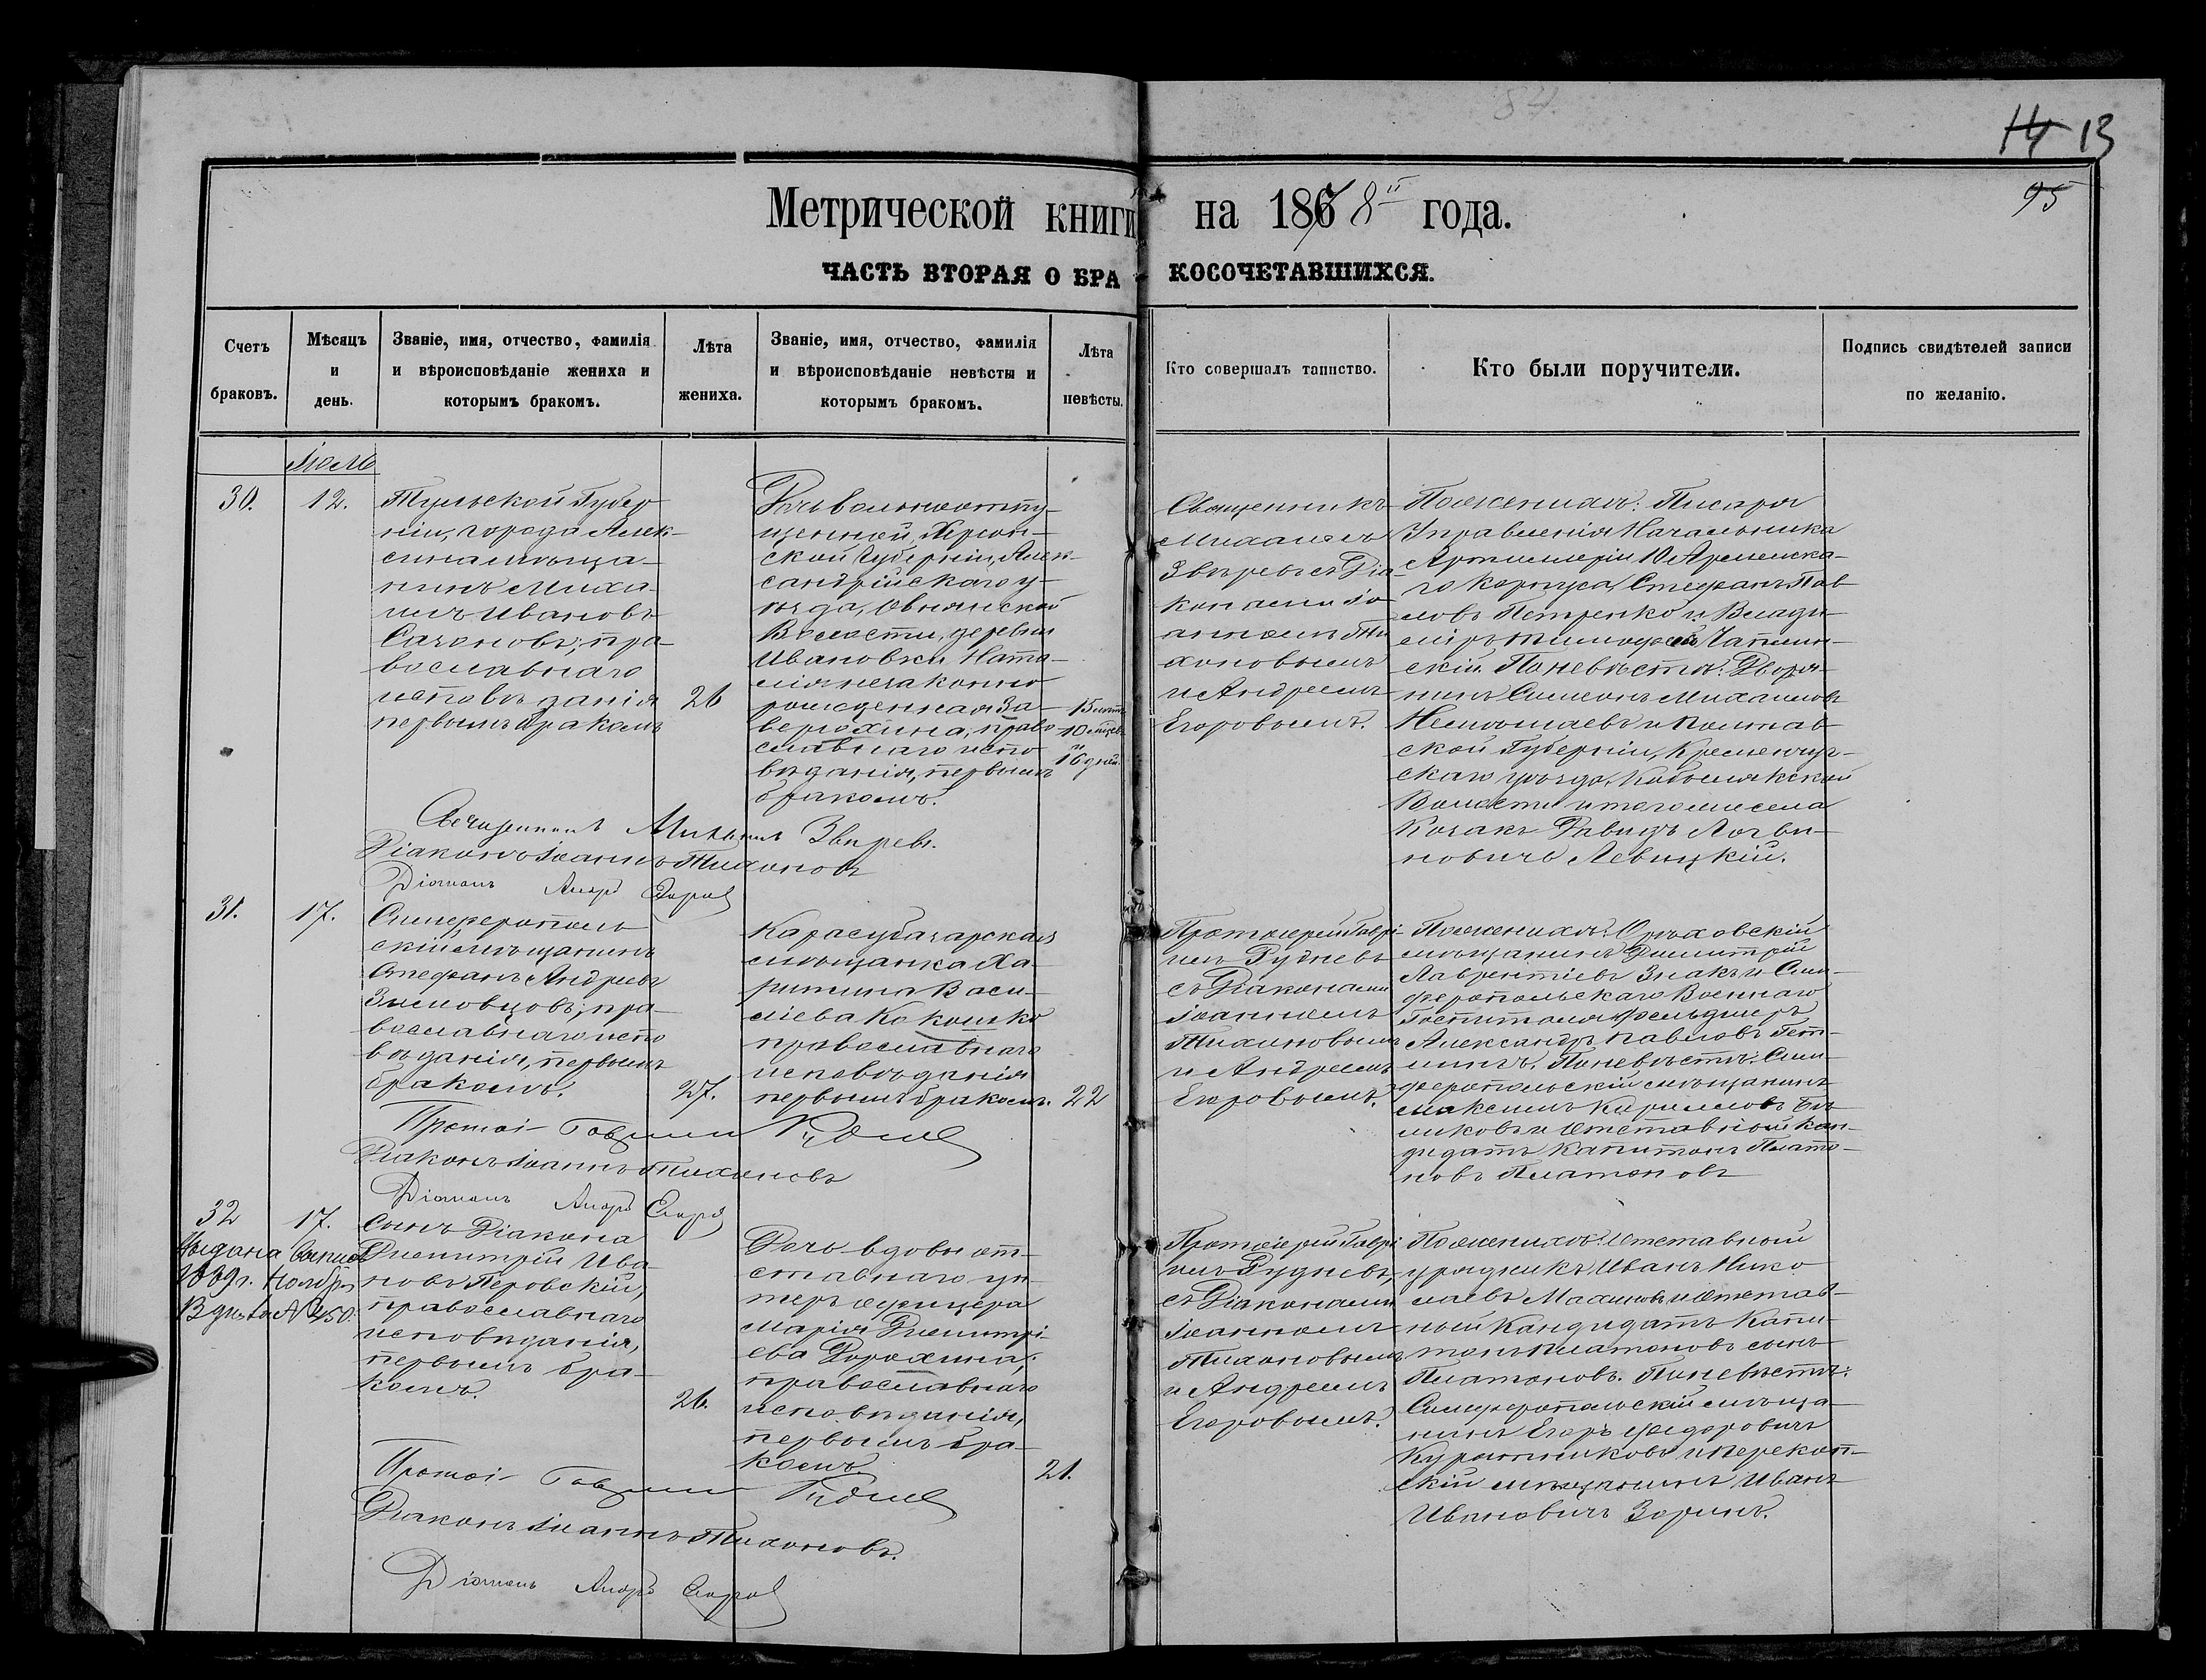 14 13
95
Метрической книги на 1868 года.
ЧАСТЬ ВТОРАЯ О БРАКОСОЧЕТАВШИХСЯ.
Счетъ браковъ.
Мѣсяцъ и день.
Званіе, имя, отчество, фамилія и вѣроисповѣданіе жениха и которымъ бракомъ.
Лѣта жениха.
Званіе, имя, отчество, фамилія и вѣроисповѣданіе невѣсты и которымъ бракомъ.
Лѣта невѣсты.
Кто совершалъ таинство.
Кто были поручители.
Подпись свидѣтелей записи по желанію.
30.
12.
Тульской Губер-
ніи, города Алек-
сина мѣща-
нинъ Миха-
илъ Ивановъ
Сазоновъ, пра-
вославнаго
исповѣданія
первымъ бракомъ
26
Дочь вольноотпу-
щенной, Херсон-
ской Губерніи, Алек-
сандрійскаго у-
ѣзда,
Волости, деревни
Ивановки Ната-
лія незаконно
рожденная За-
верюхина, право-
славнаго испо-
вѣданія, первымъ
бракомъ.
15 лѣтъ
10 мѣсяцев
и
16 дней.
Священникъ
Михаилъ
Звѣревъ съ Діа-
конами Іо-
анномъ Ти-
хоновымъ
и Андреемъ
Егоровымъ.
По женихѣ: Писаря
Управленія Начальника
Артиллеріи 10 Армейска-
го Корпуса, Стефанъ Пав-
ловъ Петренко и Влади-
міръ Тимофеевъ
скій. По невѣстѣ: Дворя-
нинъ Симеонъ Михаиловъ
и Полтав-
ской Губерніи, Кременчуг-
скаго уѣзда,
Волости и того же села
Козакъ Давидъ Логви-
новичъ Левицкій.
Священникъ Михаилъ Звѣревъ.
Діаконъ Іоаннъ Тихоновъ
Діаконъ Андр Егоров
31.
17.
Симферополь-
скій мѣщанинъ
Стефанъ Андреевъ
Зиновцовъ, пра-
вославнаго испо-
вѣданія, первымъ
бракомъ.
27.
Карасубазарская
мѣщанка Ха-
ритина Васи-
ліева Кокошко
православнаго
исповѣданія
первымъ бракомъ.
22
Протоіерей Гаврі-
илъ Рудневъ
съ Діаконами
Іоанномъ
Тихоновымъ
и Андреемъ
Егоровымъ.
По женихѣ: Орѣховскій
мѣщанинъ Димитрій
Лаврентіевъ Знакъ и Сим-
феропольскаго Военнаго
Госпиталя фельдшеръ
Александръ Павловъ Гет-
По невѣстѣ: Сим-
феропольскій мѣщанинъ
Максимъ Кириловъ Бѣ-
ликовъ и Отставной Кан-
дидатъ Капитонъ Плато-
новъ Платоновъ
Протоі- Гавриил Руднев
Діаконъ Іоаннъ Тихоновъ
Діаконъ Андр Егоров
32
17.
Выдана выпись
1889 г. Ноября
№ 450.
Сынъ Діакона
Димитрій Ива-
новъ Перовскій,
православнаго
исповѣданія,
первымъ бра-
комъ.
26.
Дочь вдовы от-
ставнаго ун-
теръ офицера
Марія Димитрі-
ева Дорохина,
православнаго
исповѣданія,
первымъ бра-
комъ.
21.
Протоіерей Гаврі-
илъ Рудневъ,
съ Діаконами
Іоанномъ
Тихоновымъ
и Андреемъ
Егоровымъ.
По женихѣ: Отставной
урядникъ Иванъ Нико-
лаевъ Махинъ и Отстав-
ный Кандидатъ Капи-
тонъ Платоновъ сынъ
Платоновъ. По невѣстѣ:
Симферопольскій мѣща-
нинъ Егоръ Ѳедоровичъ
Курятниковъ и перекоп-
скій мѣщанинъ Иванъ
Ивановичъ Зоринъ.
Протоі- Гавриил Руднев
Діаконъ Іоаннъ Тихоновъ.
Діаконъ Андръ Егоров